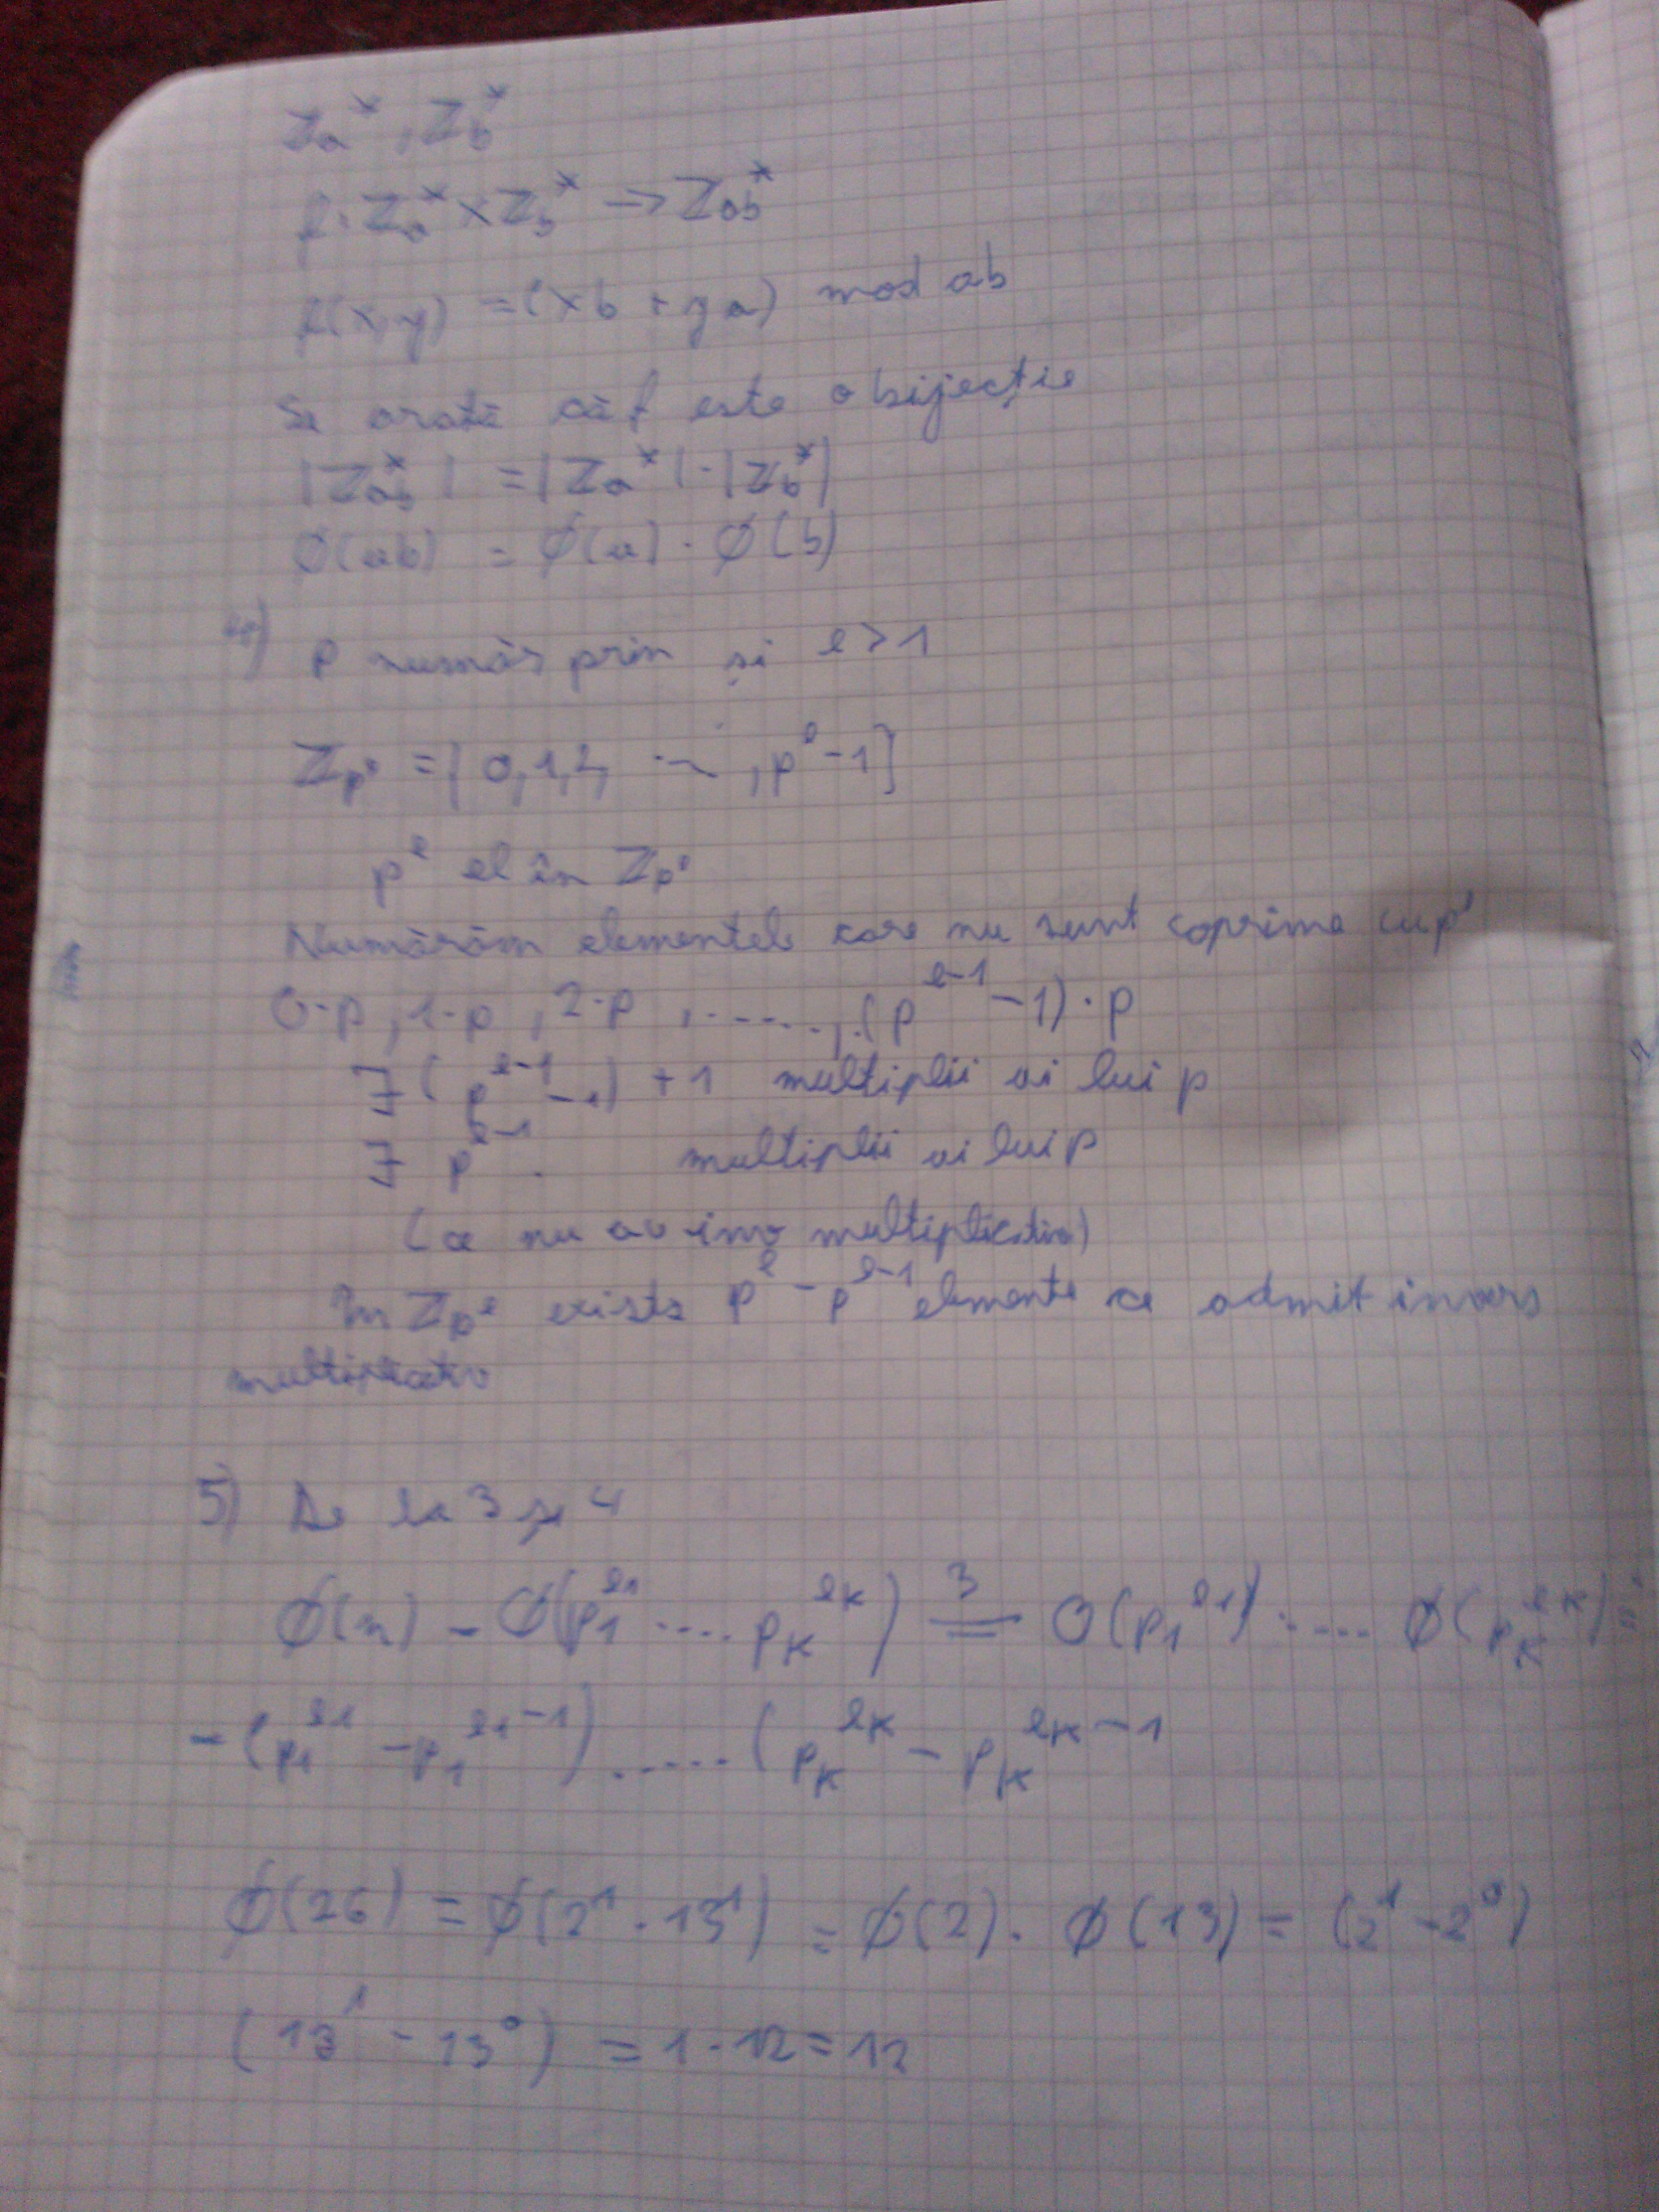 Z_a^*, Z_b^*
f: Z_a^* × Z_b^* → Z_ab^*
f(x,y) = (xb + ya) mod ab
Se arată că f este o bijecție
|Z_ab^*| = |Z_a^*| · |Z_b^*|
ϕ(ab) = ϕ(a) · ϕ(b)
4) p număr prim și e > 1
Z_p^e = {0,1,2, ..., p^e - 1}
p^e el în Z_p^e
Numărăm elementele care nu sunt coprime cu p^e
0·p, 1·p, 2·p, ....., (p^{e-1} - 1)·p
∃ (p^{e-1} - 1) + 1 multiplii ai lui p
∃ p^{e-1} multiplii ai lui p
(ce nu au inv multiplicativ)
În Z_p^e există p^e - p^{e-1} elemente ce admit invers
multiplicativ
5) De la 3 și 4
ϕ(n) = ϕ(p_1^{e1} .... p_k^{ek}) =^3 ϕ(p_1^{e1}) ..... ϕ(p_k^{ek}) =
= (p_1^{e1} - p_1^{e1-1}) ..... (p_k^{ek} - p_k^{ek-1}
ϕ(26) = ϕ(2^1 · 13^1) = ϕ(2) · ϕ(13) = (2^1 - 2^0)
(13^1 - 13^0) = 1 · 12 = 12